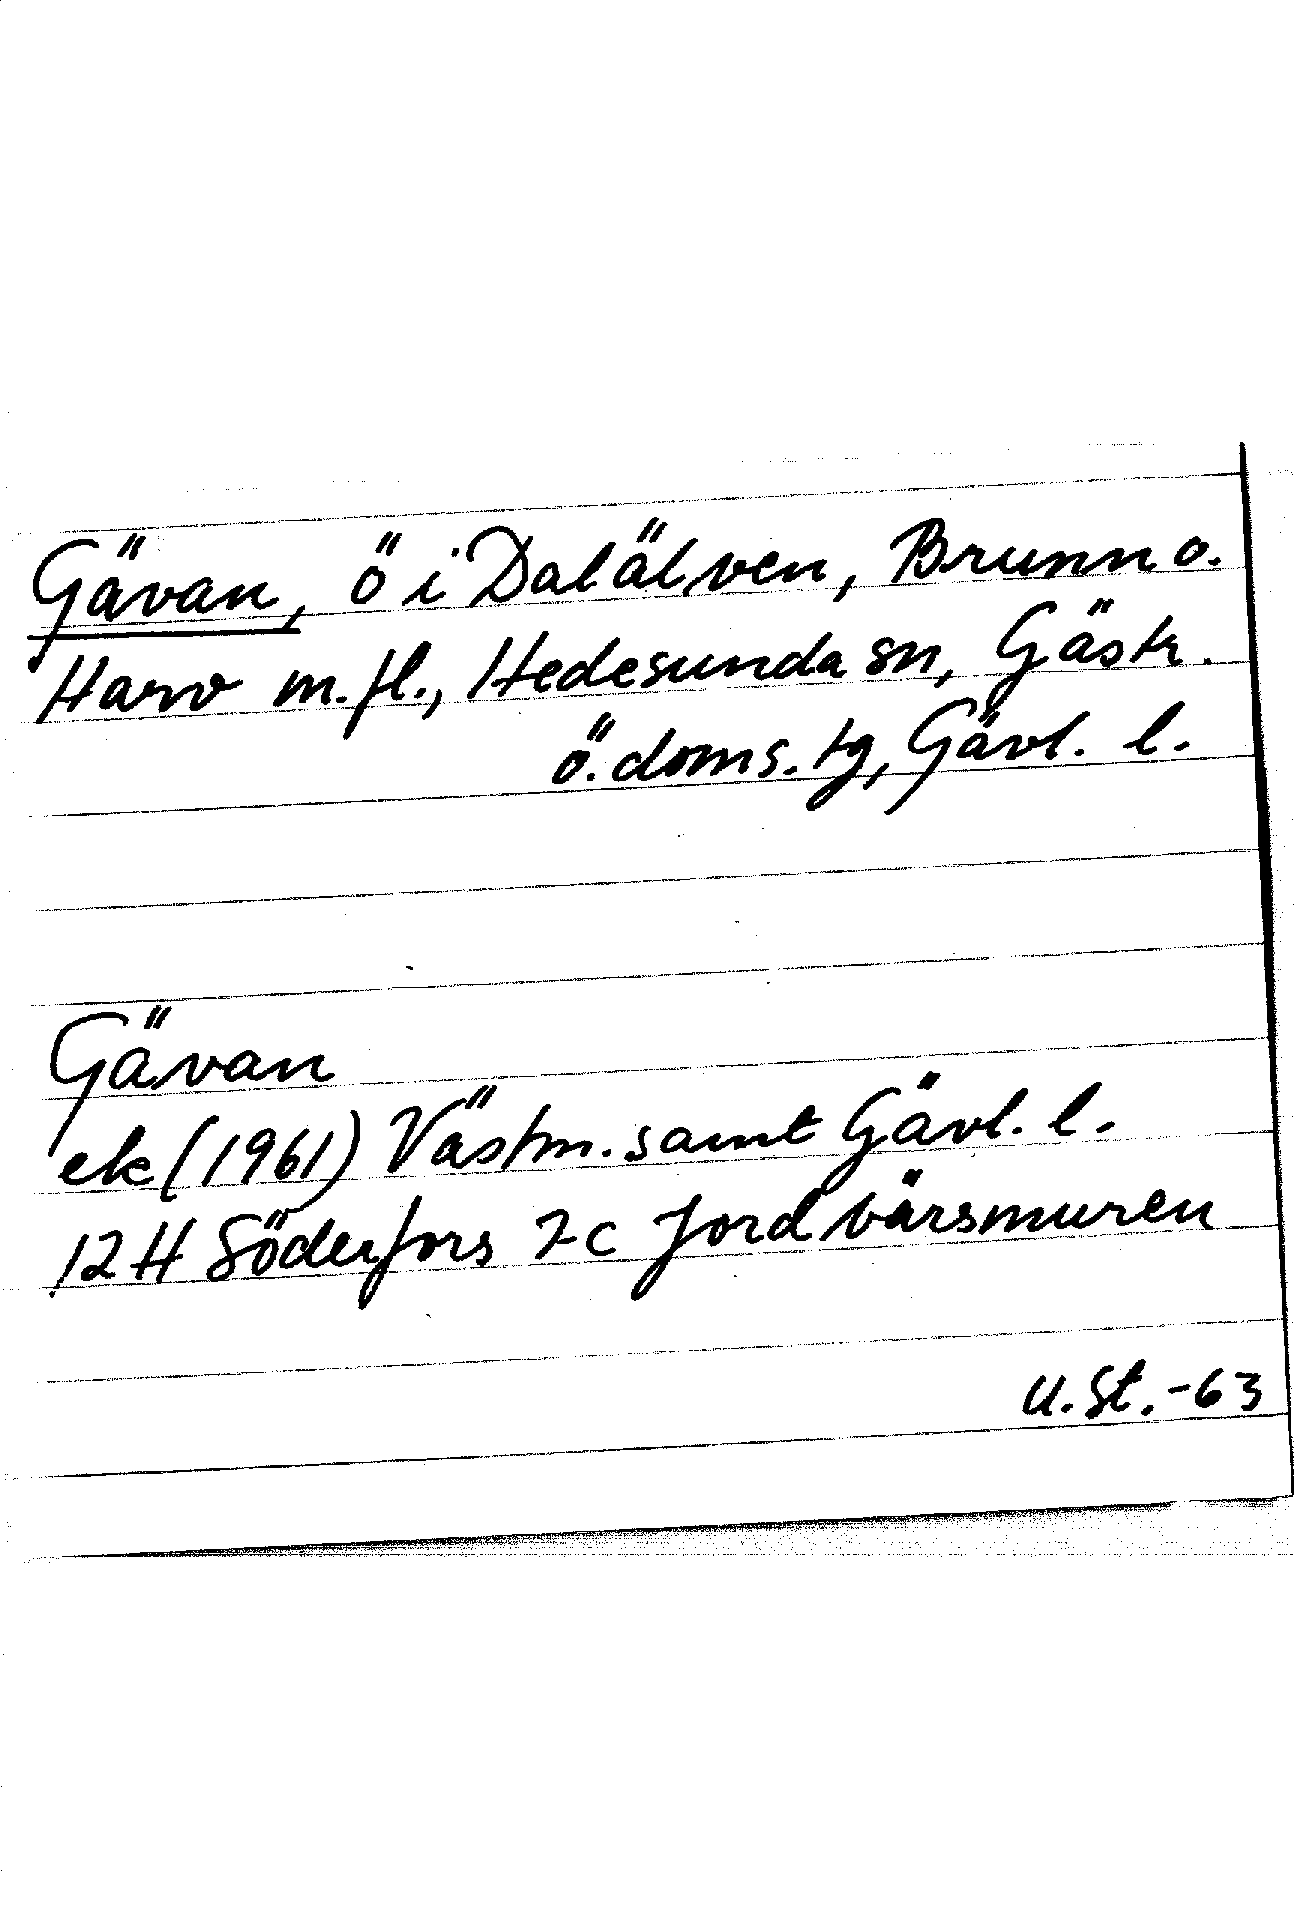 Gävan, ö i Dalälven, Brunn o.
Harv m.fl., Hedesunda sn, Gästr.
ö. doms. tg, Gävl. l.
Gävan
ek (1961) Västm. samt Gävl. l.
12 H Söderfors 2 c Jordbärsmuren
U. St. -63